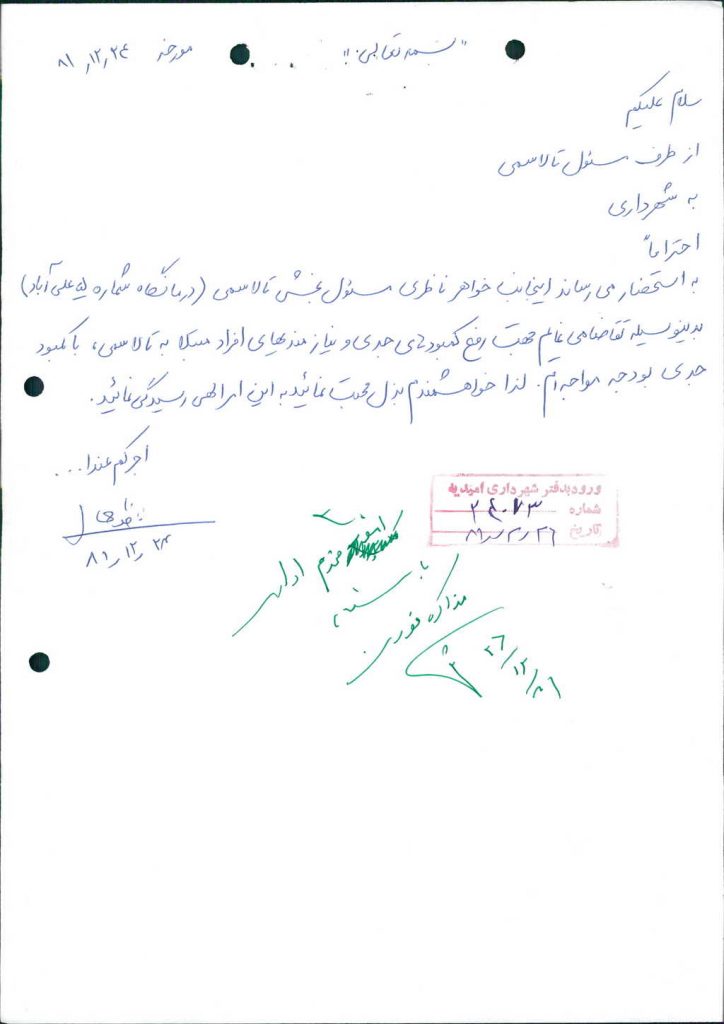 "بسمه تعالی" مورخه ۸۱٫۱۲٫۲۴
سلام علیکم
از طرف مسئول تالاسمی
به شهرداری
احتراماً
به استحضار می رساند اینجانب خواهر ناظری مسئول بخش تالاسمی (درمانگاه شماره علی آباد)
بدینوسیله تقاضا می نمایم جهت رفع کمبودهای جدی و نیازمندیهای افراد مبتلا به تالاسمی، با کمبود
جدی بودجه مواجه ام. لذا خواهشمندم بذل محبت نمائید به این امر الهی رسیدگی نمائید.
اجرکم عندا...
۸۱٫۱۲٫۲۴
ورود بدفتر شهرداری امیدیه
شماره ۲۴۰۷۳
تاریخ
محترم اداری
مذاکره فوری
۸۱/۱۲/۲۶